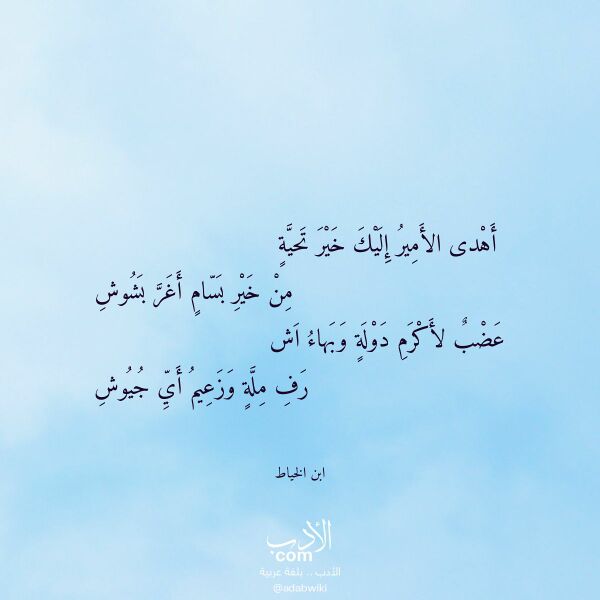 أَهْدى الأَمِيرُ إِلَيْكَ خَيْرَ تَحيَّةٍ
مِنْ خَيْرِ بَسّامٍ أَغَرَّ بَشُوشِ
عَضْبٌ لأَكْرَمِ دَوْلَةٍ وَبَهاءُ اَش
رَفِ مِلَّةٍ وَزَعِيمُ أَيِّ جُيُوشِ
ابن الخياط
الأدب
.com
الأدب .. بلغة عربية
@adabwiki